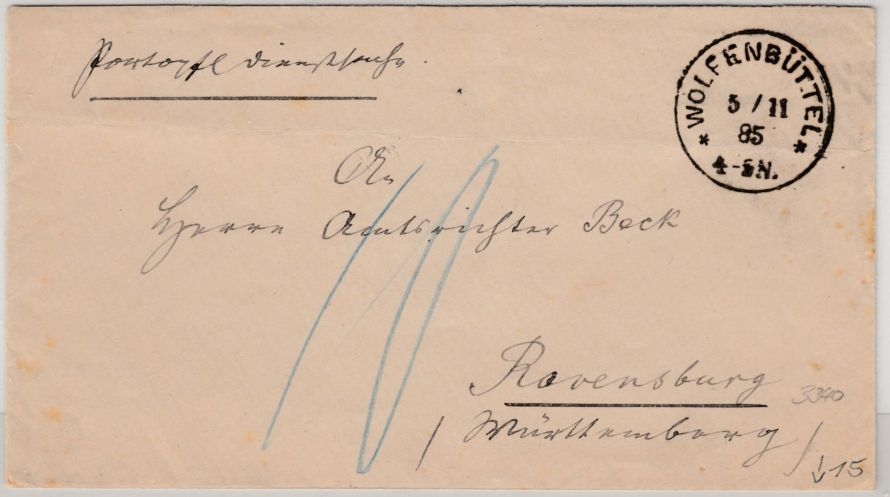 Portopfl Dienstsache.
* WOLFENBÜTTEL *
5 / 11
85
4-5N.
An
Herrn Amtsrichter Beck
10
Ravensburg
/ Württemberg /
3340
↓15